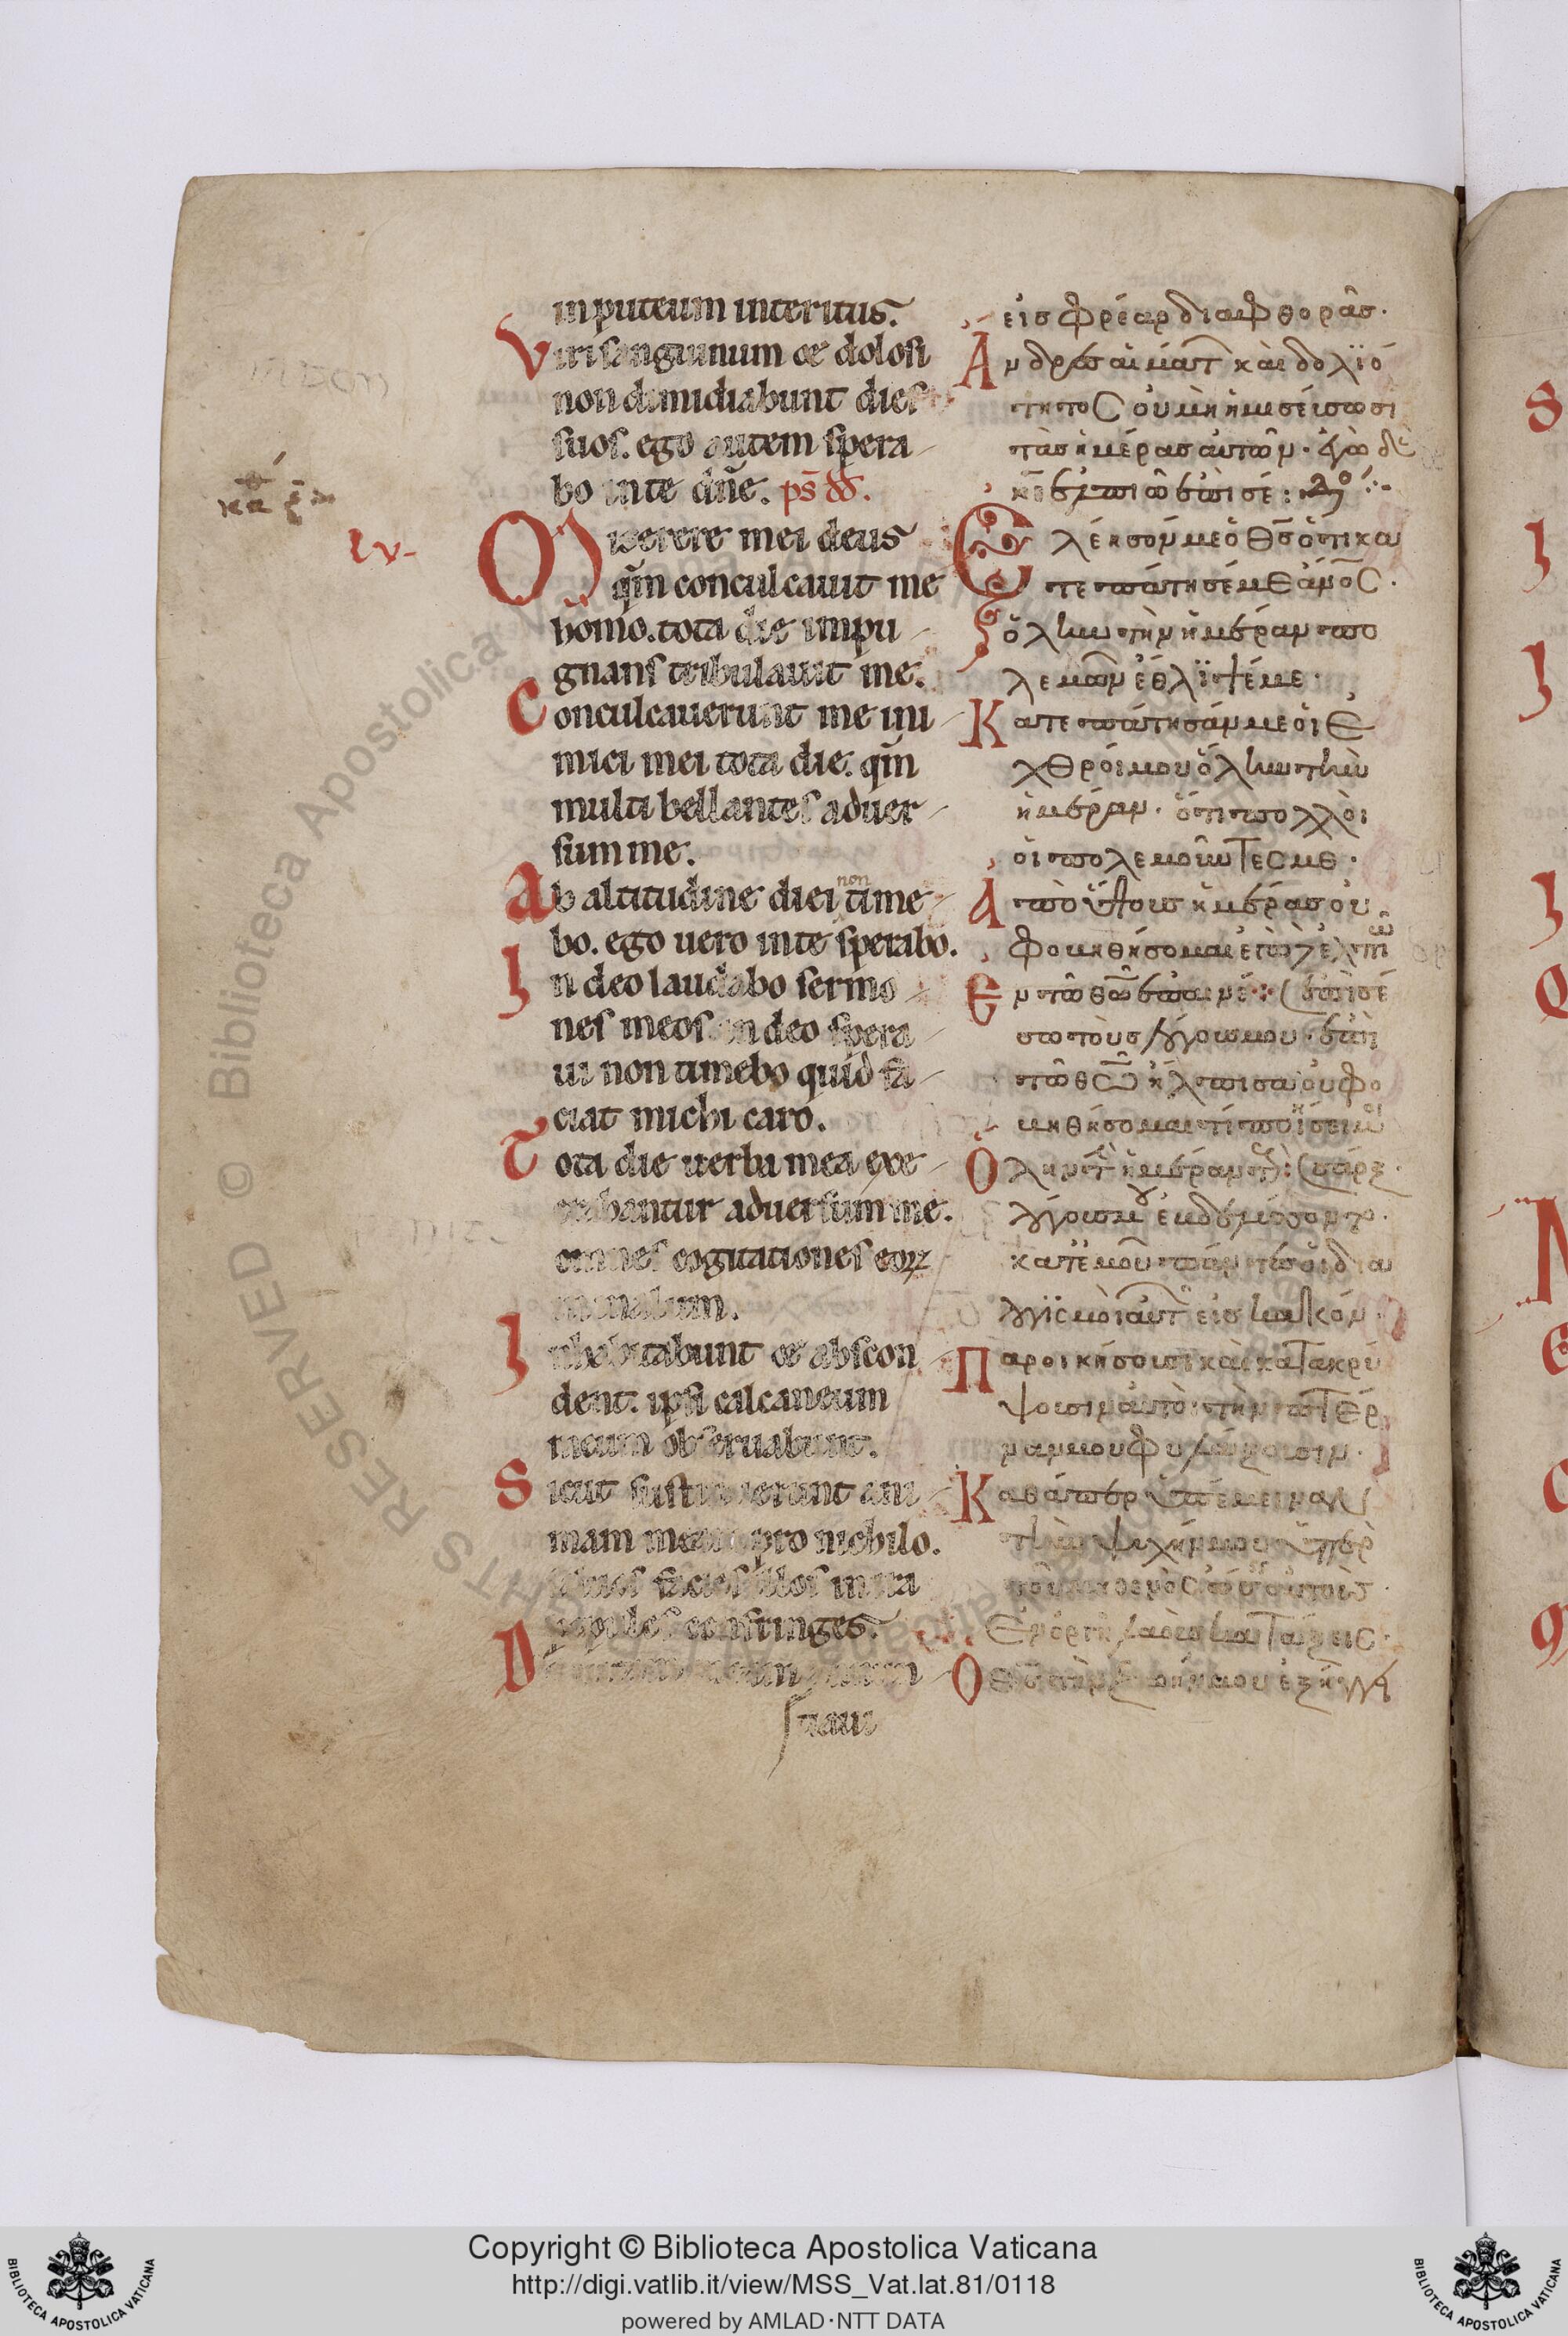 in puteum interitus.
Viri sanguinum et dolosi
non dimidiabunt dies
suos. ego autem spera
bo in te dñe. ps̄ dd.
lv.
Miserere mei deus
qm̄ conculcavit me
homo. tota die impu
gnans tribulavit me.
Conculcaverunt me ini
mici mei tota die. qm̄
multi bellantes adver
sum me.
Ab altitudine diei non time
bo. ego vero in te sperabo.
In deo laudabo sermo
nes meos in deo spera
vi non timebo quid fa
ciat michi caro.
Tota die verba mea exe
crabantur adversum me.
omnes cogitationes eoꝝ
in malum.
Inhabitabunt et abscon
dent. ipsi calcaneum
meum observabunt.
Sicut sustinuerunt ani
mam meam pro nichilo.
salvos facies illos in ira
populos confringes.
D
tiavi
εἰσ φρέαρ διαφθορᾶσ.
Ἄνδρεσ αἱμάτ καὶ δολϊό
τητοσ οὐ μὴ ἡμισεύσωσι
τὰσ ἡμέρασ αὐτῶν. ἐγὼ δὲ
κε̄ ἐλπιῶ ἐπὶ σέ:
Ἐλέησόν με ὁ θσ̄ ὅτι κα
τεπάτησέ με ἄνοσ.
ὅλην τὴν ἡμέραν πο
λεμῶν ἔθλϊψέ με.
Κατεπάτησάν με οἱ ἐ
χθροί μου ὅλην τὴν
ἡμέραν. ὅτι πολλοὶ
οἱ πολεμοῦντεσ με.
Ἀπὸ ὕψουσ ἡμέρασ οὐ
φοβηθήσομαι ἐγὼ δὲ ἐλπιῶ
Ἐν τῶ θῶ ἐπαινέ: (ἐπὶ σέ
σω τοὺσ λόγουσ μου. ἐπὶ
τῶ θῶ ἤλπισα οὐ φο
βηθήσομαι τί ποιήσει μοι
Ὅλην τ ἡμέραν τ: (σάρξ.
λόγουσ μου ἐβδελύσσοντο.
κατ ἐμοῦ πάντεσ οἱ δια
λογϊσμοὶ αὐτ εἰσ κακόν.
Παροικήσουσι καὶ κατακρύ
ψουσιν αὐτοὶ τὴν πτέρ
ναν μου φυλάξουσιν.
Καθάπερ ὑπέμειναν
τὴν ψυχήν μου ὑπὲρ
τοῦ μηθενὸσ σώσεισ αὐτούσ.
Ἐν ὀργῆ λαοὺσ κατάξεισ.
Ὁ θσ̄ τὴν ζωήν μου ἐξήγγ
Copyright © Biblioteca Apostolica Vaticana
http://digi.vatlib.it/view/MSS_Vat.lat.81/0118
powered by AMLAD·NTT DATA